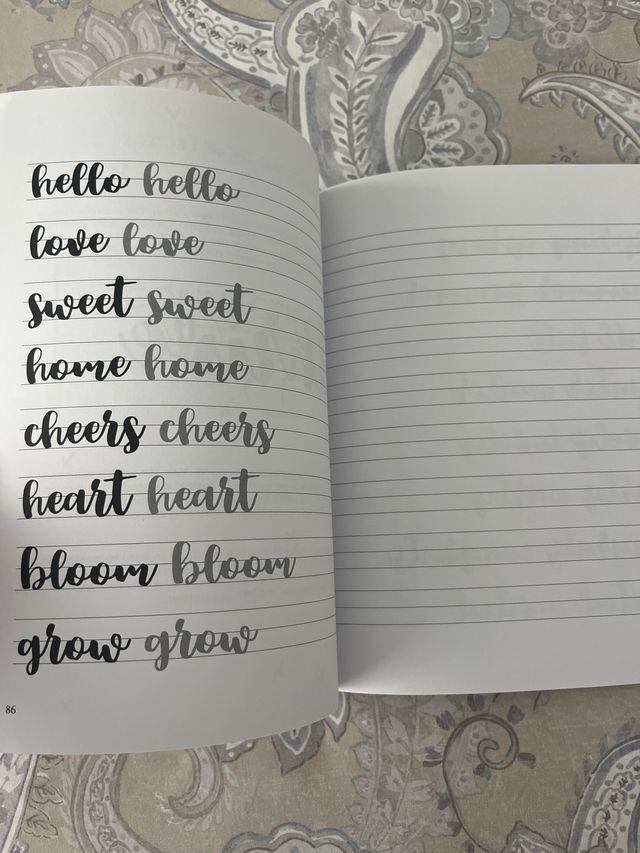 hello hello
love love
sweet sweet
home home
cheers cheers
heart heart
bloom bloom
grow grow
86